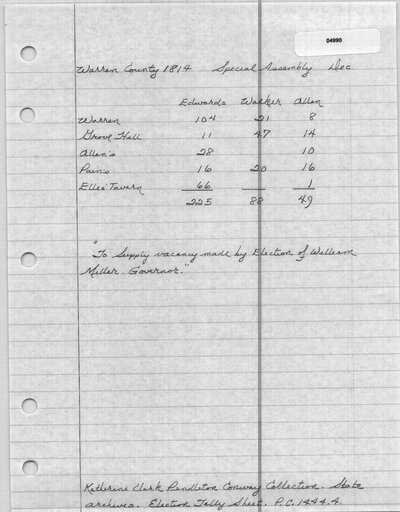 04990
Warren County 1814 Special Assembly Dec.
Edwards Walker Allen
Warren 104 21 8
Grove Hill 11 47 14
Allen's 28 10
Pain's 16 20 16
Elles' Tavern 66 1
225 88 49
"To Supply vacancy made by Election of William
Miller. Governor."
Katherine Clark Pendleton Conway Collection. State
archives. Election Tally Sheet. P.C. 1444.4.